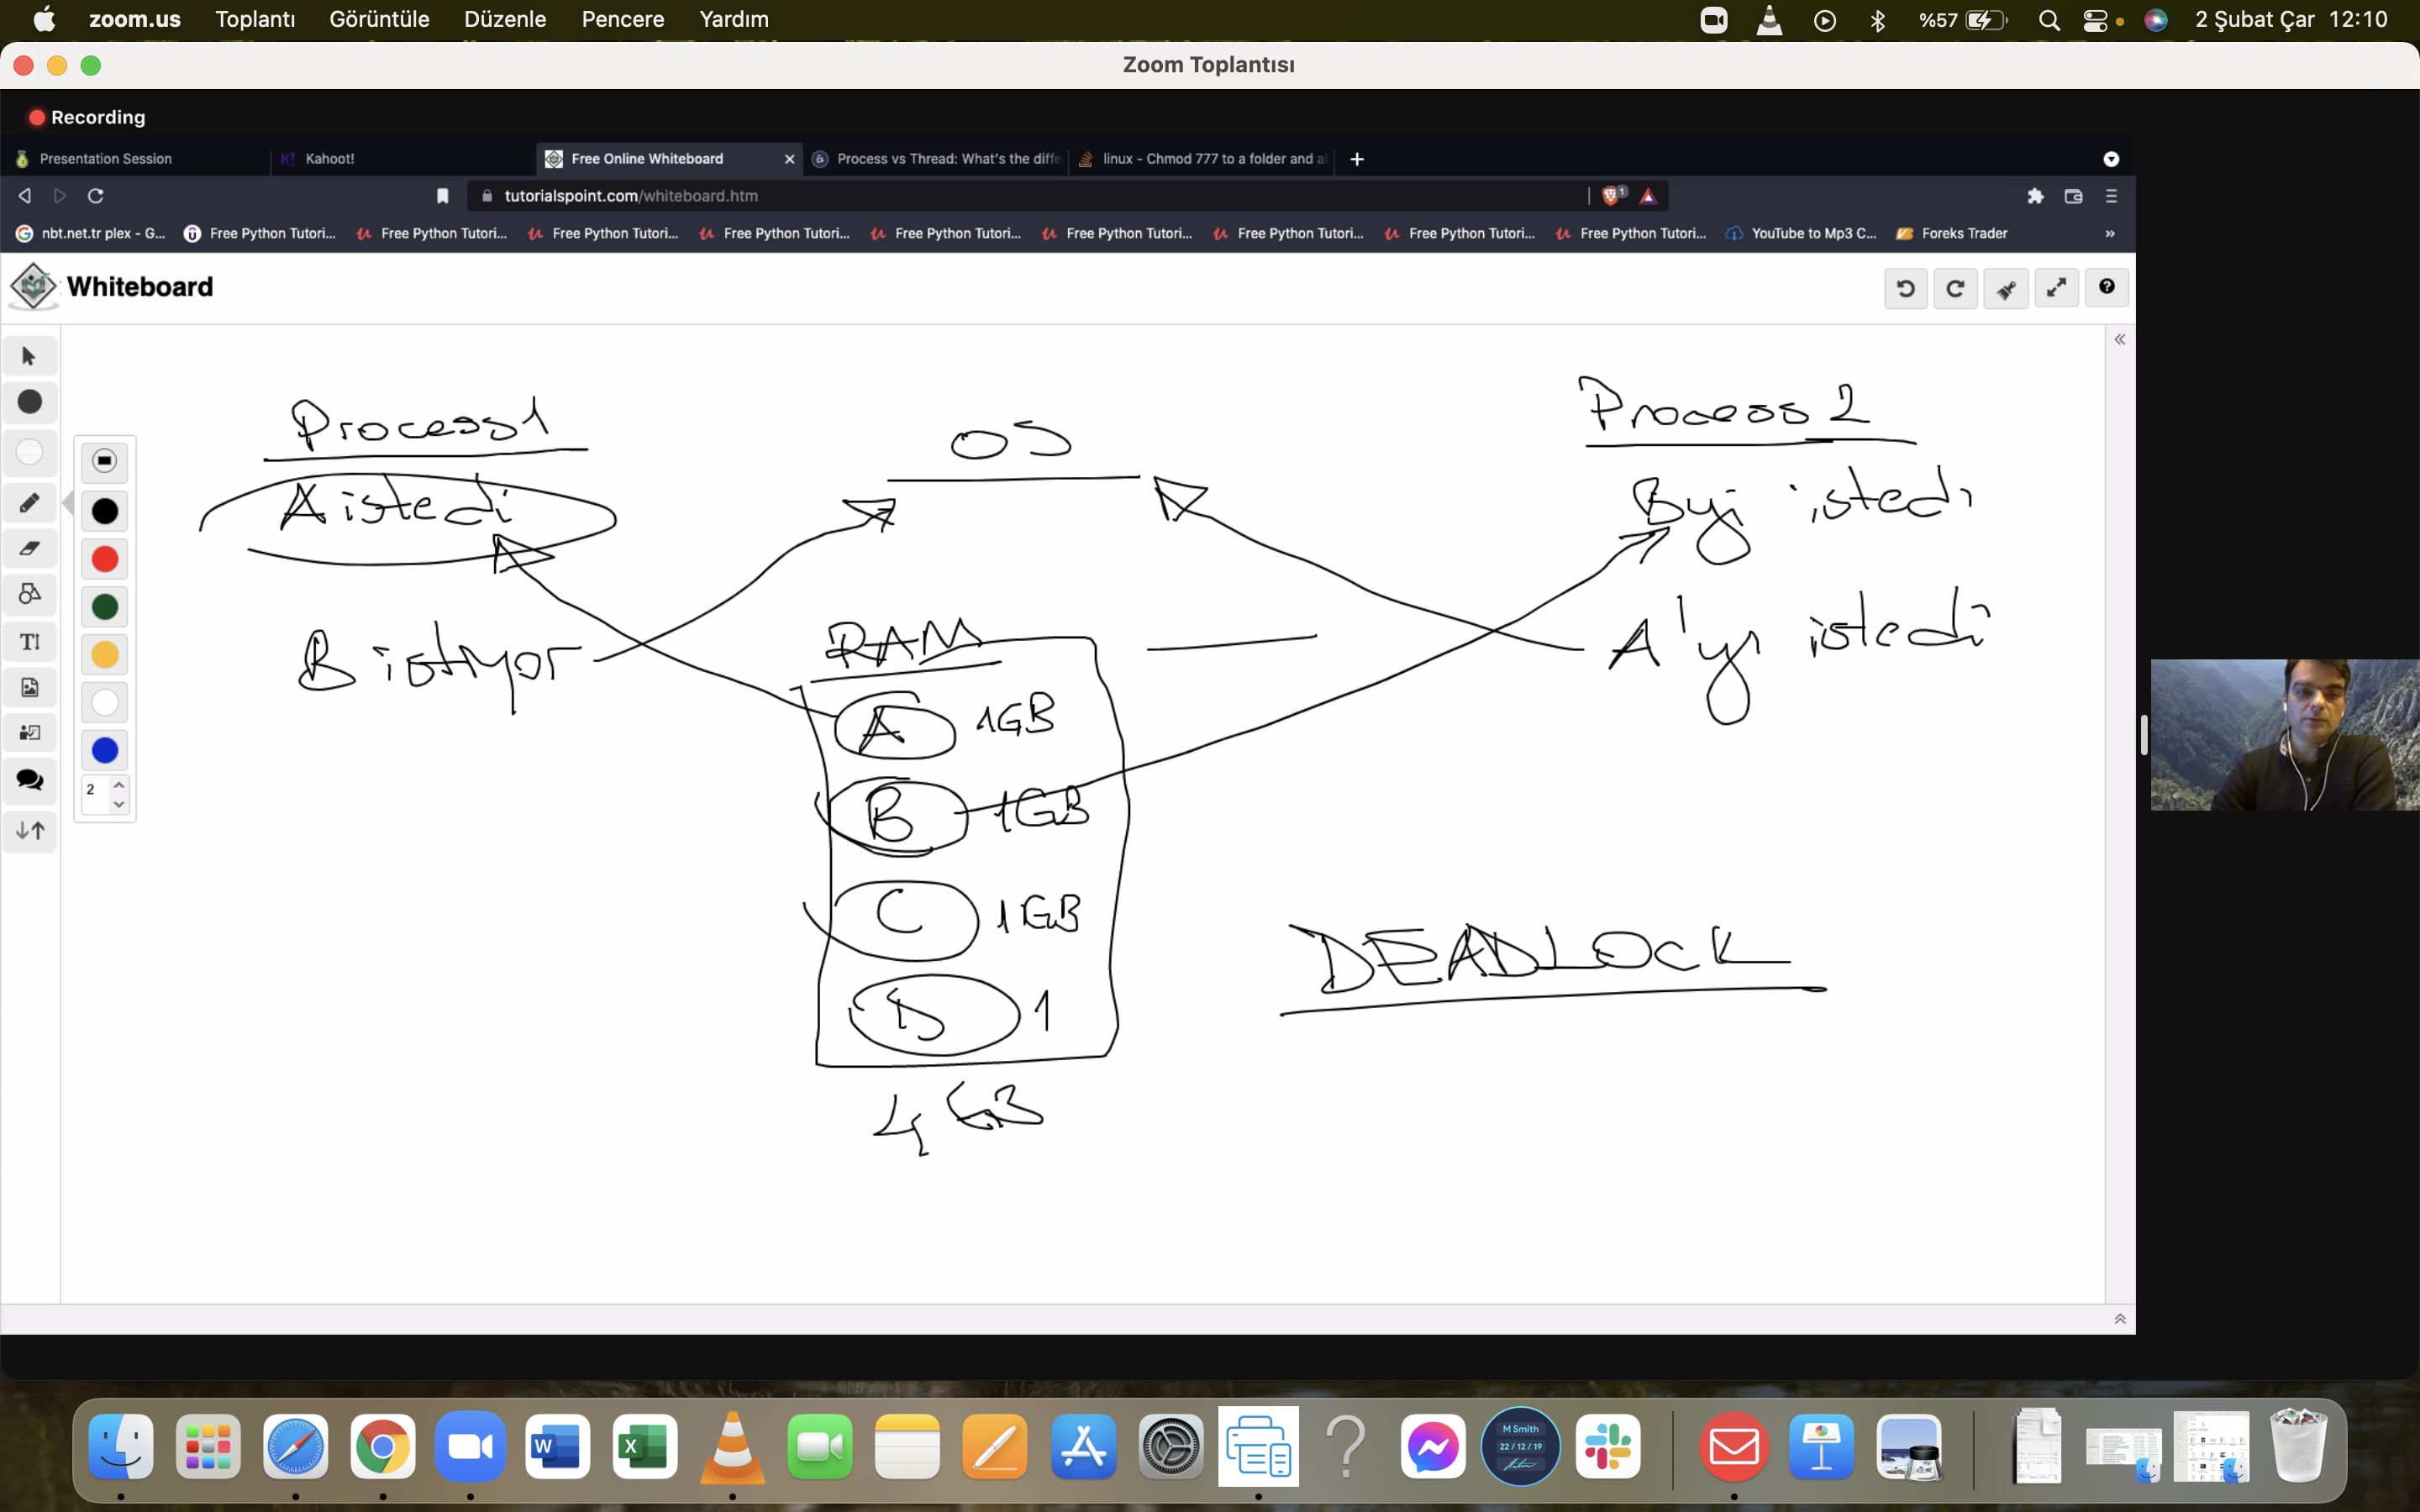 zoom.us Toplantı Görüntüle Düzenle Pencere Yardım %57 2 Şubat Çar 12:10
Zoom Toplantısı
Recording
Presentation Session Kahoot! Free Online Whiteboard Process vs Thread: What's the diffe linux - Chmod 777 to a folder and al
tutorialspoint.com/whiteboard.htm 1
nbt.net.tr plex - G... Free Python Tutori... Free Python Tutori... Free Python Tutori... Free Python Tutori... Free Python Tutori... Free Python Tutori... Free Python Tutori... Free Python Tutori... Free Python Tutori... YouTube to Mp3 C... Foreks Trader
Whiteboard
Process1
OS
Process 2
A istedi
B'yi istedi
B istiyor
A'yı istedi
RAM
A 1GB
B 1GB
C 1GB
D 1
4 GB
DEADLOCK
2
M Smith
22 / 12 / 19